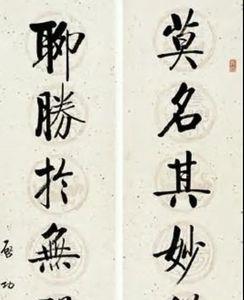 莫名其妙
聊勝於無
啟功